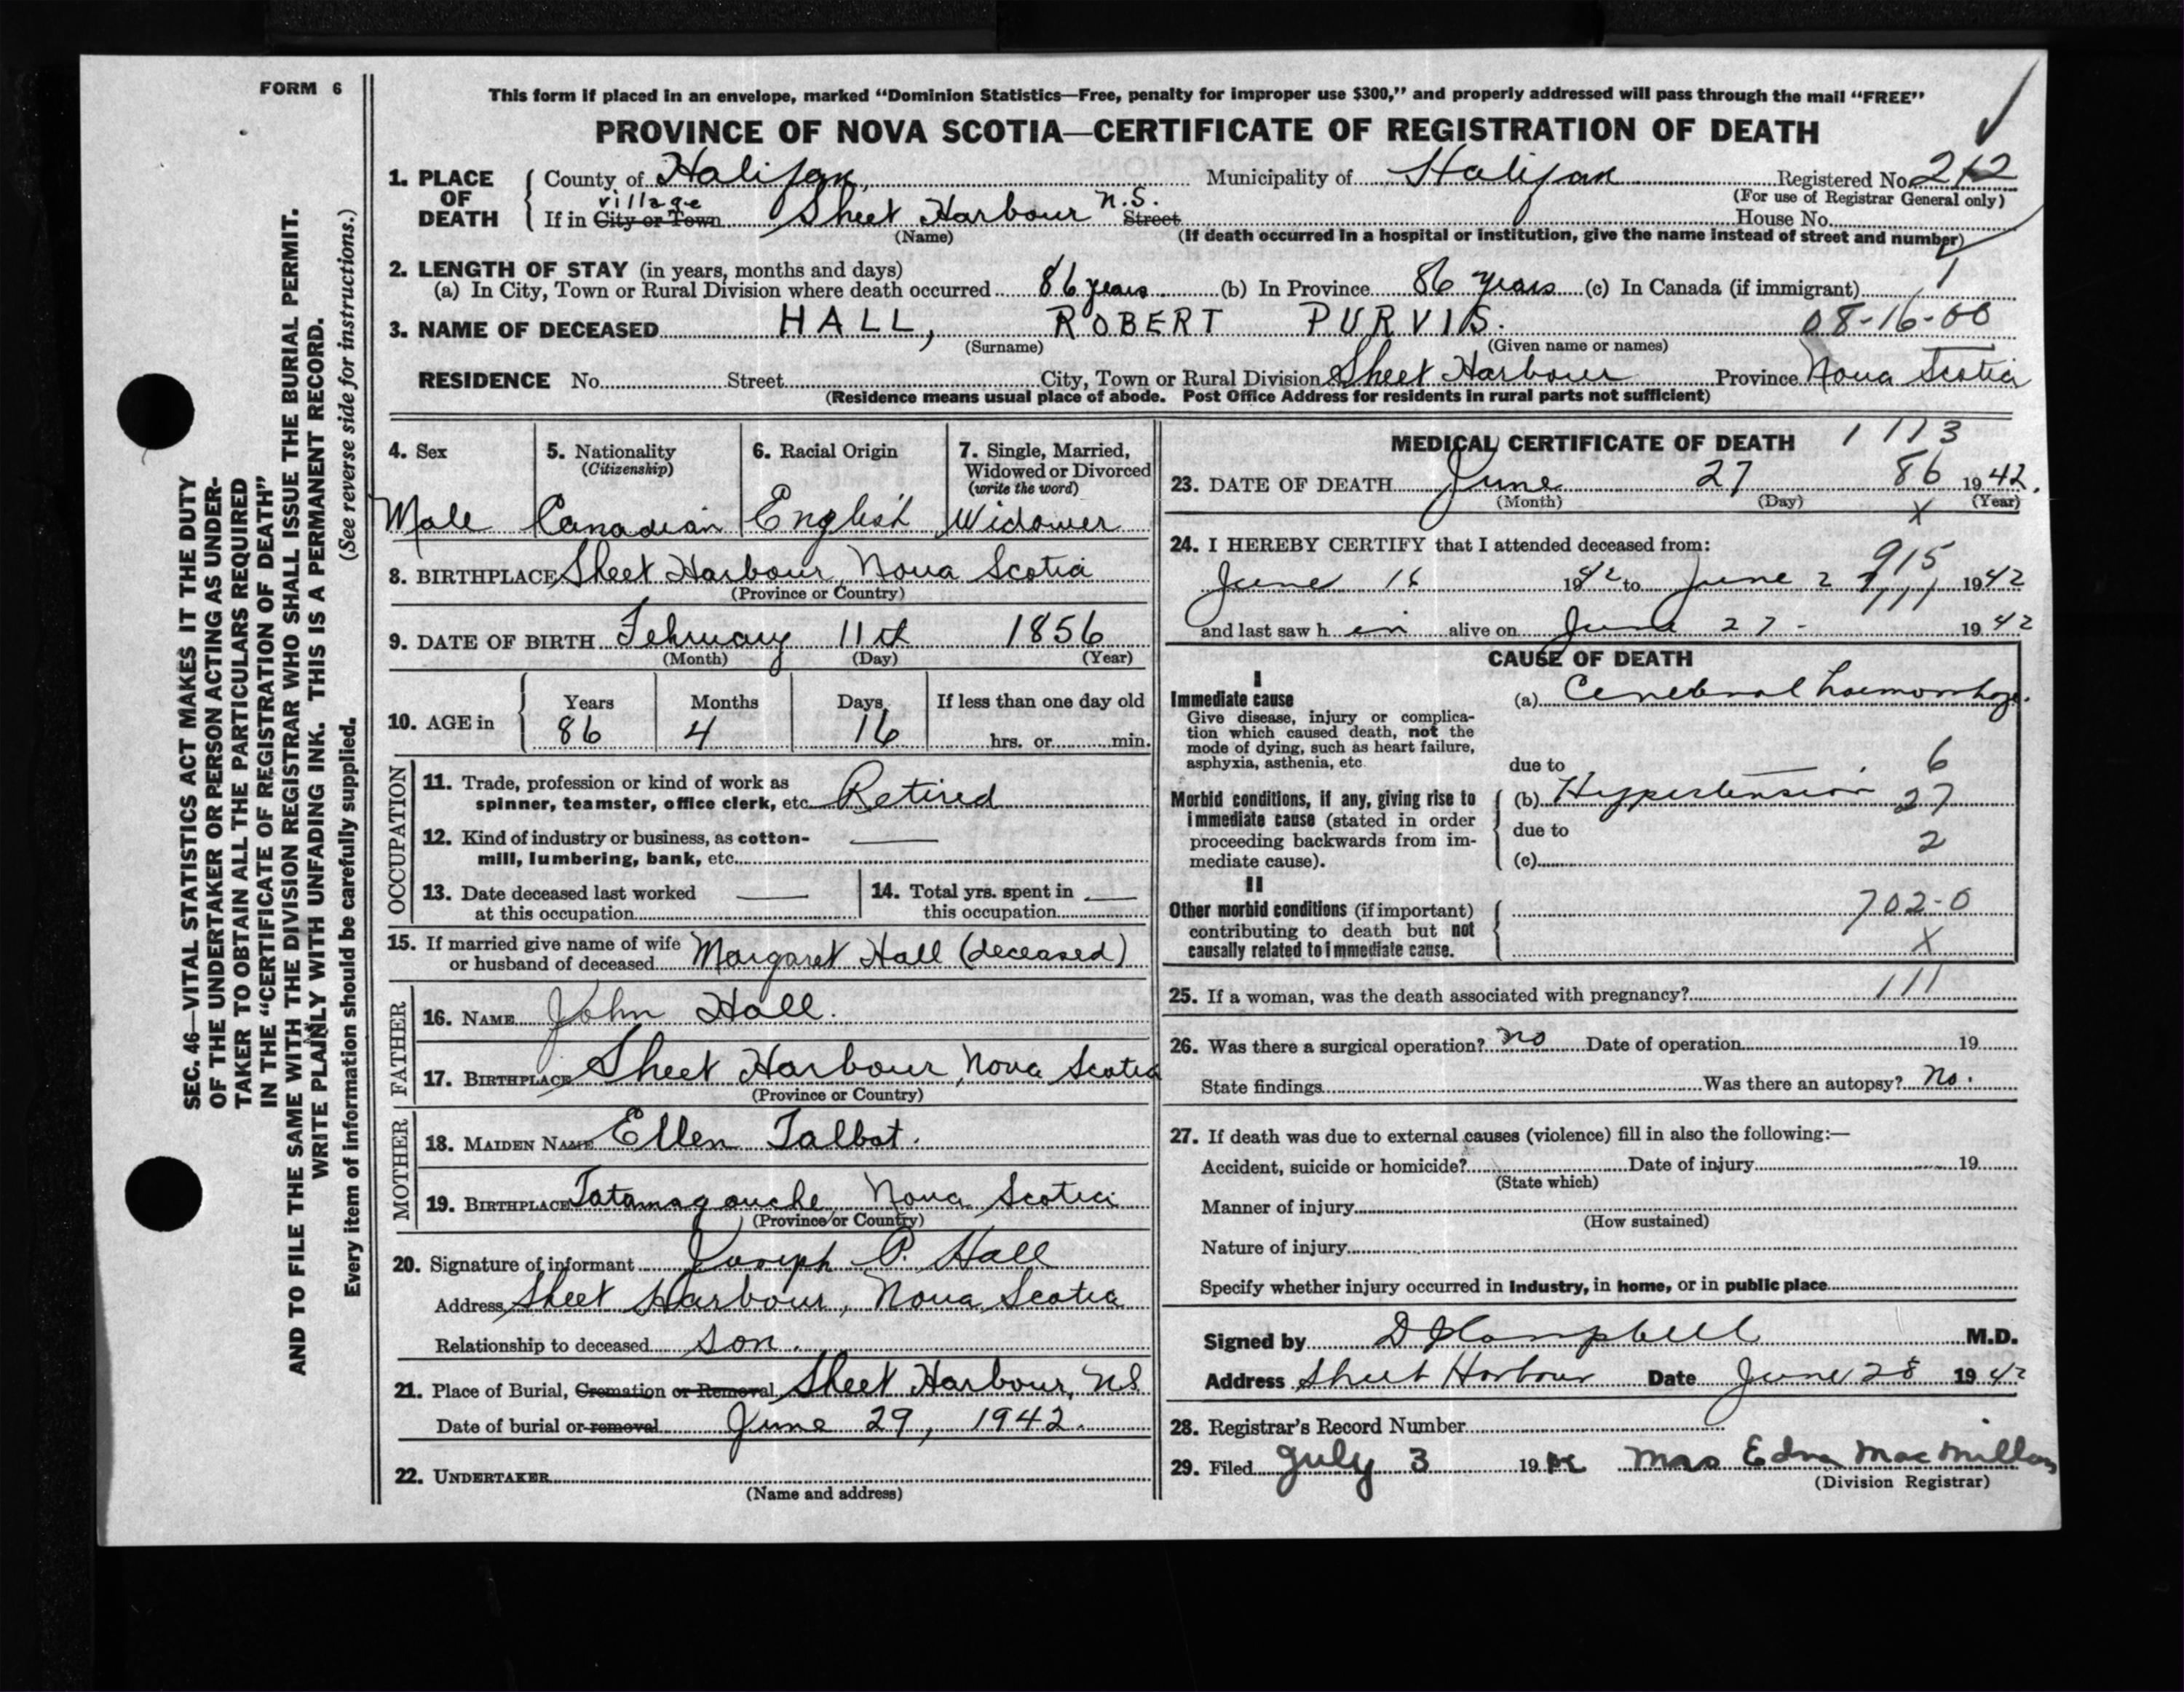 FORM 6
This form if placed in an envelope, marked "Dominion Statistics—Free, penalty for improper use $300," and properly addressed will pass through the mail "FREE"
PROVINCE OF NOVA SCOTIA—CERTIFICATE OF REGISTRATION OF DEATH
SEC. 46—VITAL STATISTICS ACT MAKES IT THE DUTY
OF THE UNDERTAKER OR PERSON ACTING AS UNDER-
TAKER TO OBTAIN ALL THE PARTICULARS REQUIRED
IN THE "CERTIFICATE OF REGISTRATION OF DEATH"
AND TO FILE THE SAME WITH THE DIVISION REGISTRAR WHO SHALL ISSUE THE BURIAL PERMIT.
WRITE PLAINLY WITH UNFADING INK. THIS IS A PERMANENT RECORD.
Every item of information should be carefully supplied. (See reverse side for instructions.)
1. PLACE OF DEATH County of Halifax, Municipality of Halifax Registered No. 212
(For use of Registrar General only)
village
If in City or Town Sheet Harbour N.S. Street House No.
(Name) (If death occurred in a hospital or institution, give the name instead of street and number)
2. LENGTH OF STAY (in years, months and days)
(a) In City, Town or Rural Division where death occurred 86 years (b) In Province 86 years (c) In Canada (if immigrant) 1
3. NAME OF DECEASED HALL, ROBERT PURVIS. 08-16-00
(Surname) (Given name or names)
RESIDENCE No. Street City, Town or Rural Division Sheet Harbour Province Nova Scotia
(Residence means usual place of abode. Post Office Address for residents in rural parts not sufficient)
4. Sex 5. Nationality 6. Racial Origin 7. Single, Married,
(Citizenship) Widowed or Divorced
(write the word)
Male Canadian English Widower
8. BIRTHPLACE Sheet Harbour, Nova Scotia
(Province or Country)
9. DATE OF BIRTH February 11th 1856
(Month) (Day) (Year)
10. AGE in Years Months Days If less than one day old
86 4 16 hrs. or min.
OCCUPATION
11. Trade, profession or kind of work as
spinner, teamster, office clerk, etc. Retired
12. Kind of industry or business, as cotton-
mill, lumbering, bank, etc. —
13. Date deceased last worked — 14. Total yrs. spent in —
at this occupation this occupation
15. If married give name of wife
or husband of deceased Margaret Hall (deceased)
FATHER
16. NAME John Hall.
17. BIRTHPLACE Sheet Harbour, Nova Scotia
(Province or Country)
MOTHER
18. MAIDEN NAME Ellen Talbot.
19. BIRTHPLACE Tatamagouche, Nova Scotia
(Province or Country)
20. Signature of informant Joseph P. Hall
Address Sheet Harbour, Nova Scotia
Relationship to deceased son.
21. Place of Burial, Cremation or Removal Sheet Harbour, NS
Date of burial or removal June 29, 1942.
22. UNDERTAKER
(Name and address)
MEDICAL CERTIFICATE OF DEATH 1113
23. DATE OF DEATH June 27 86 1942.
(Month) (Day) (Year)
X
24. I HEREBY CERTIFY that I attended deceased from:
915
June 1942 to June 2 1942
111
and last saw h im alive on June 27 - 1942
CAUSE OF DEATH
I
Immediate cause (a) Cerebral haemorrhage.
Give disease, injury or complica-
tion which caused death, not the
mode of dying, such as heart failure,
asphyxia, asthenia, etc. due to 6
Morbid conditions, if any, giving rise to (b) Hypertension 27
immediate cause (stated in order due to
proceeding backwards from im- 2
mediate cause). (c)
II
Other morbid conditions (if important) 702-0
contributing to death but not
causally related to immediate cause. X
25. If a woman, was the death associated with pregnancy? 111
26. Was there a surgical operation? no Date of operation 19
State findings Was there an autopsy? No.
27. If death was due to external causes (violence) fill in also the following:—
Accident, suicide or homicide? Date of injury 19
(State which)
Manner of injury
(How sustained)
Nature of injury
Specify whether injury occurred in industry, in home, or in public place
Signed by Campbell M.D.
Address Sheet Harbour Date June 28 1942
28. Registrar's Record Number
29. Filed July 3 19 Mrs Edna MacMillan
(Division Registrar)